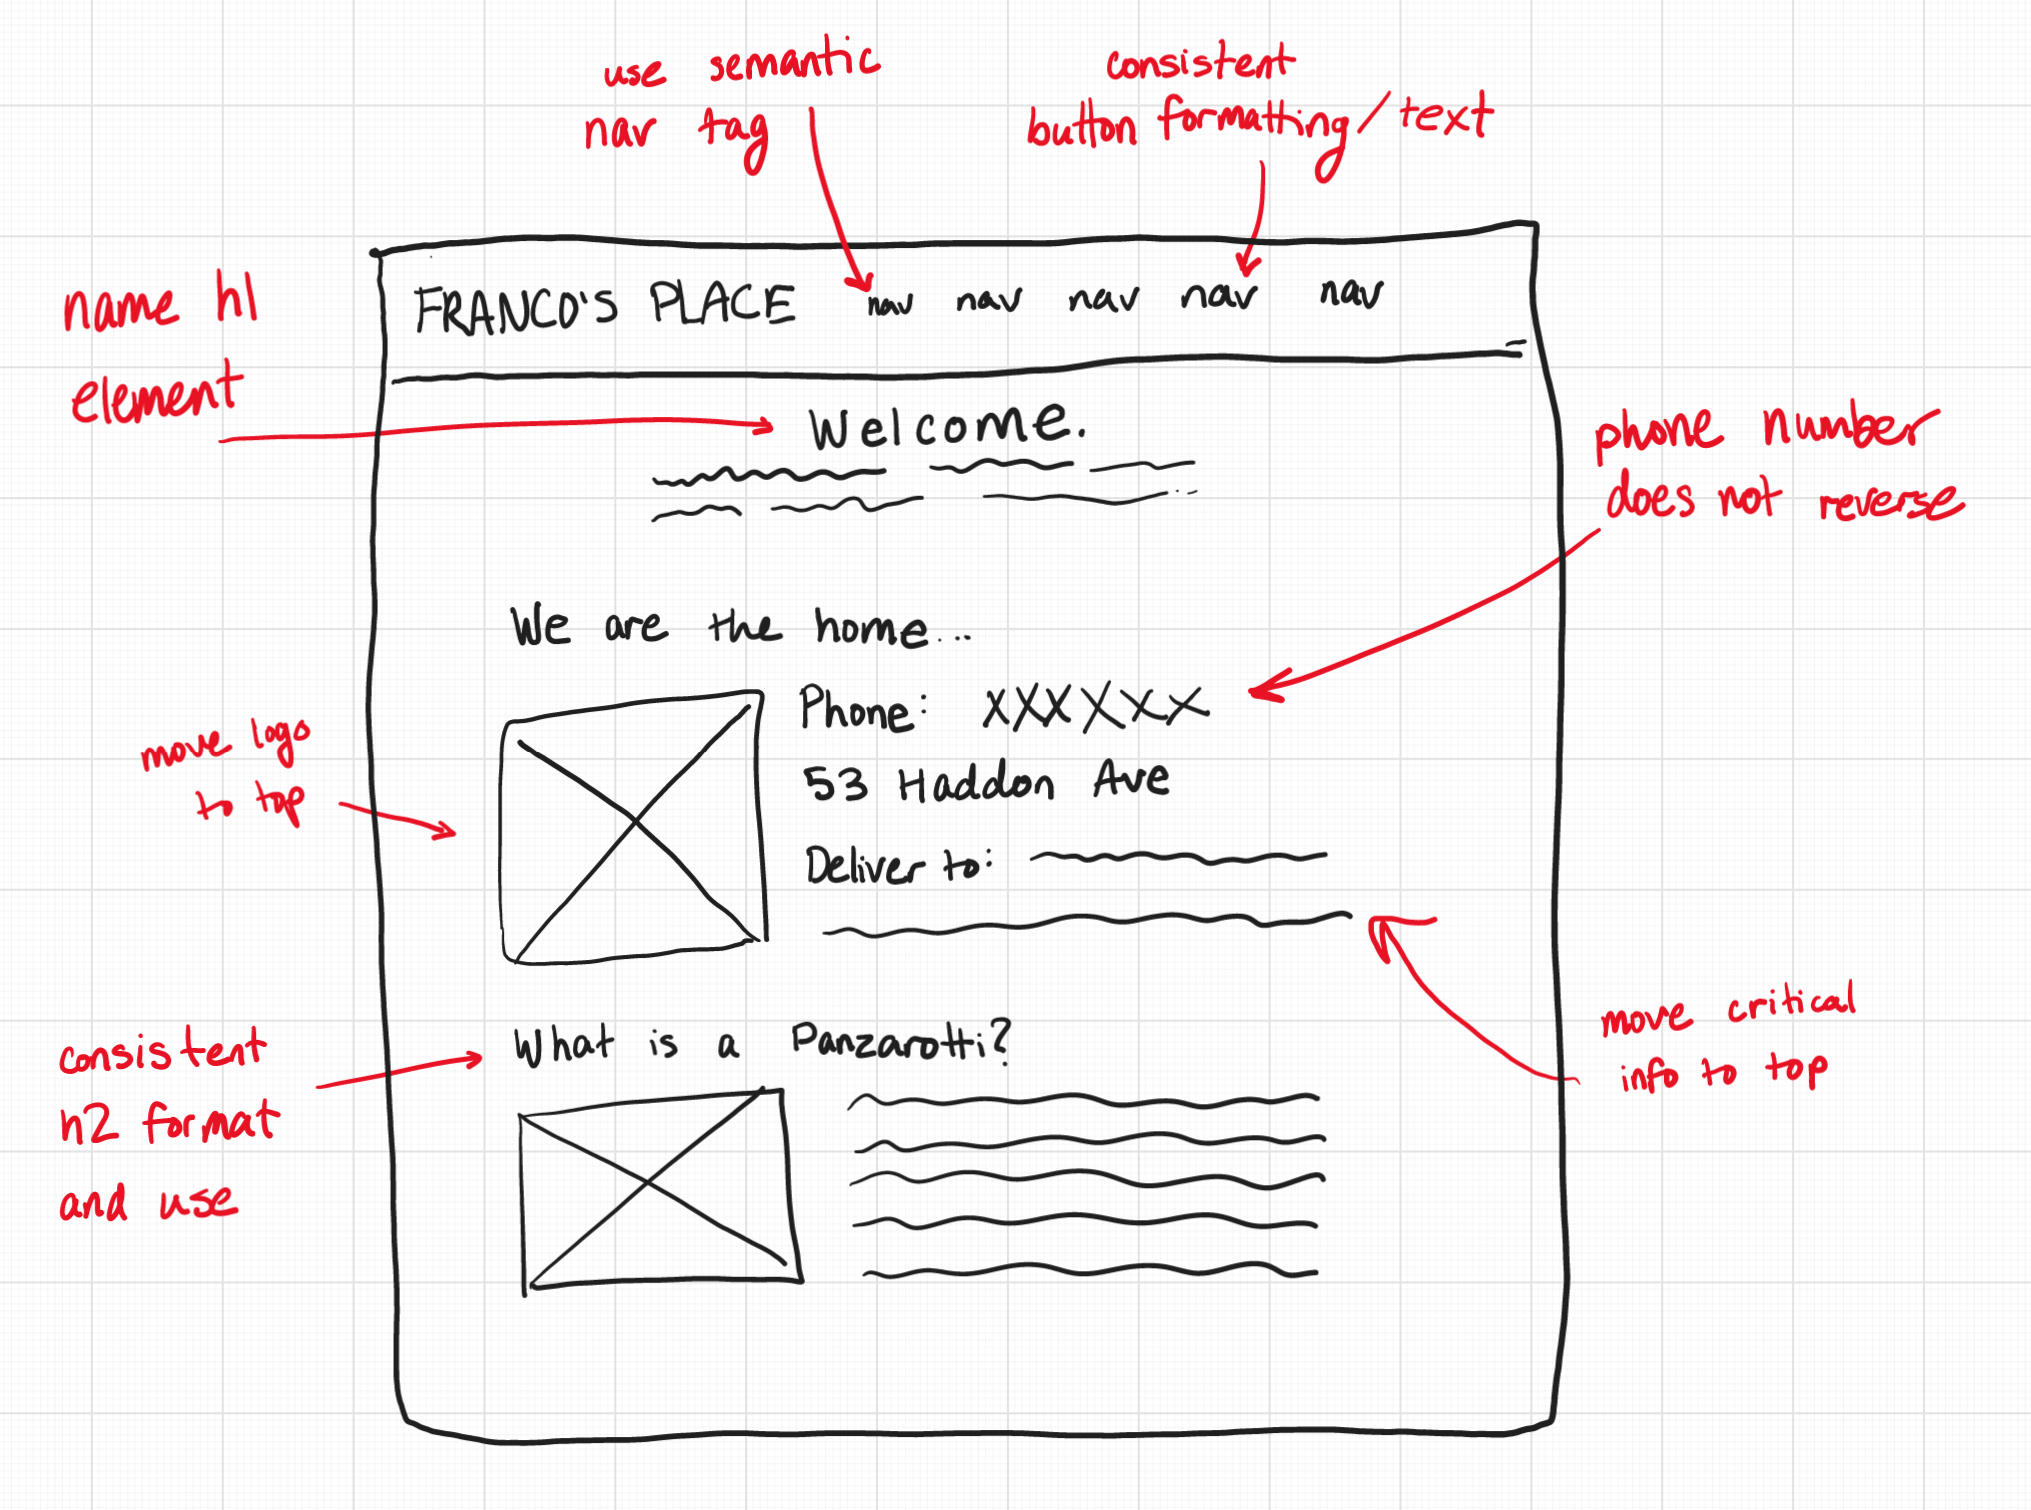 use semantic
nav tag
consistent
button formatting/text
name h1
element
FRANCO'S PLACE nav nav nav nav nav
Welcome.
phone number
does not reverse
We are the home...
Phone: XXXXXX
53 Haddon Ave
Deliver to:
move logo
to top
move critical
info to top
consistent
h2 format
and use
What is a Panzarotti?